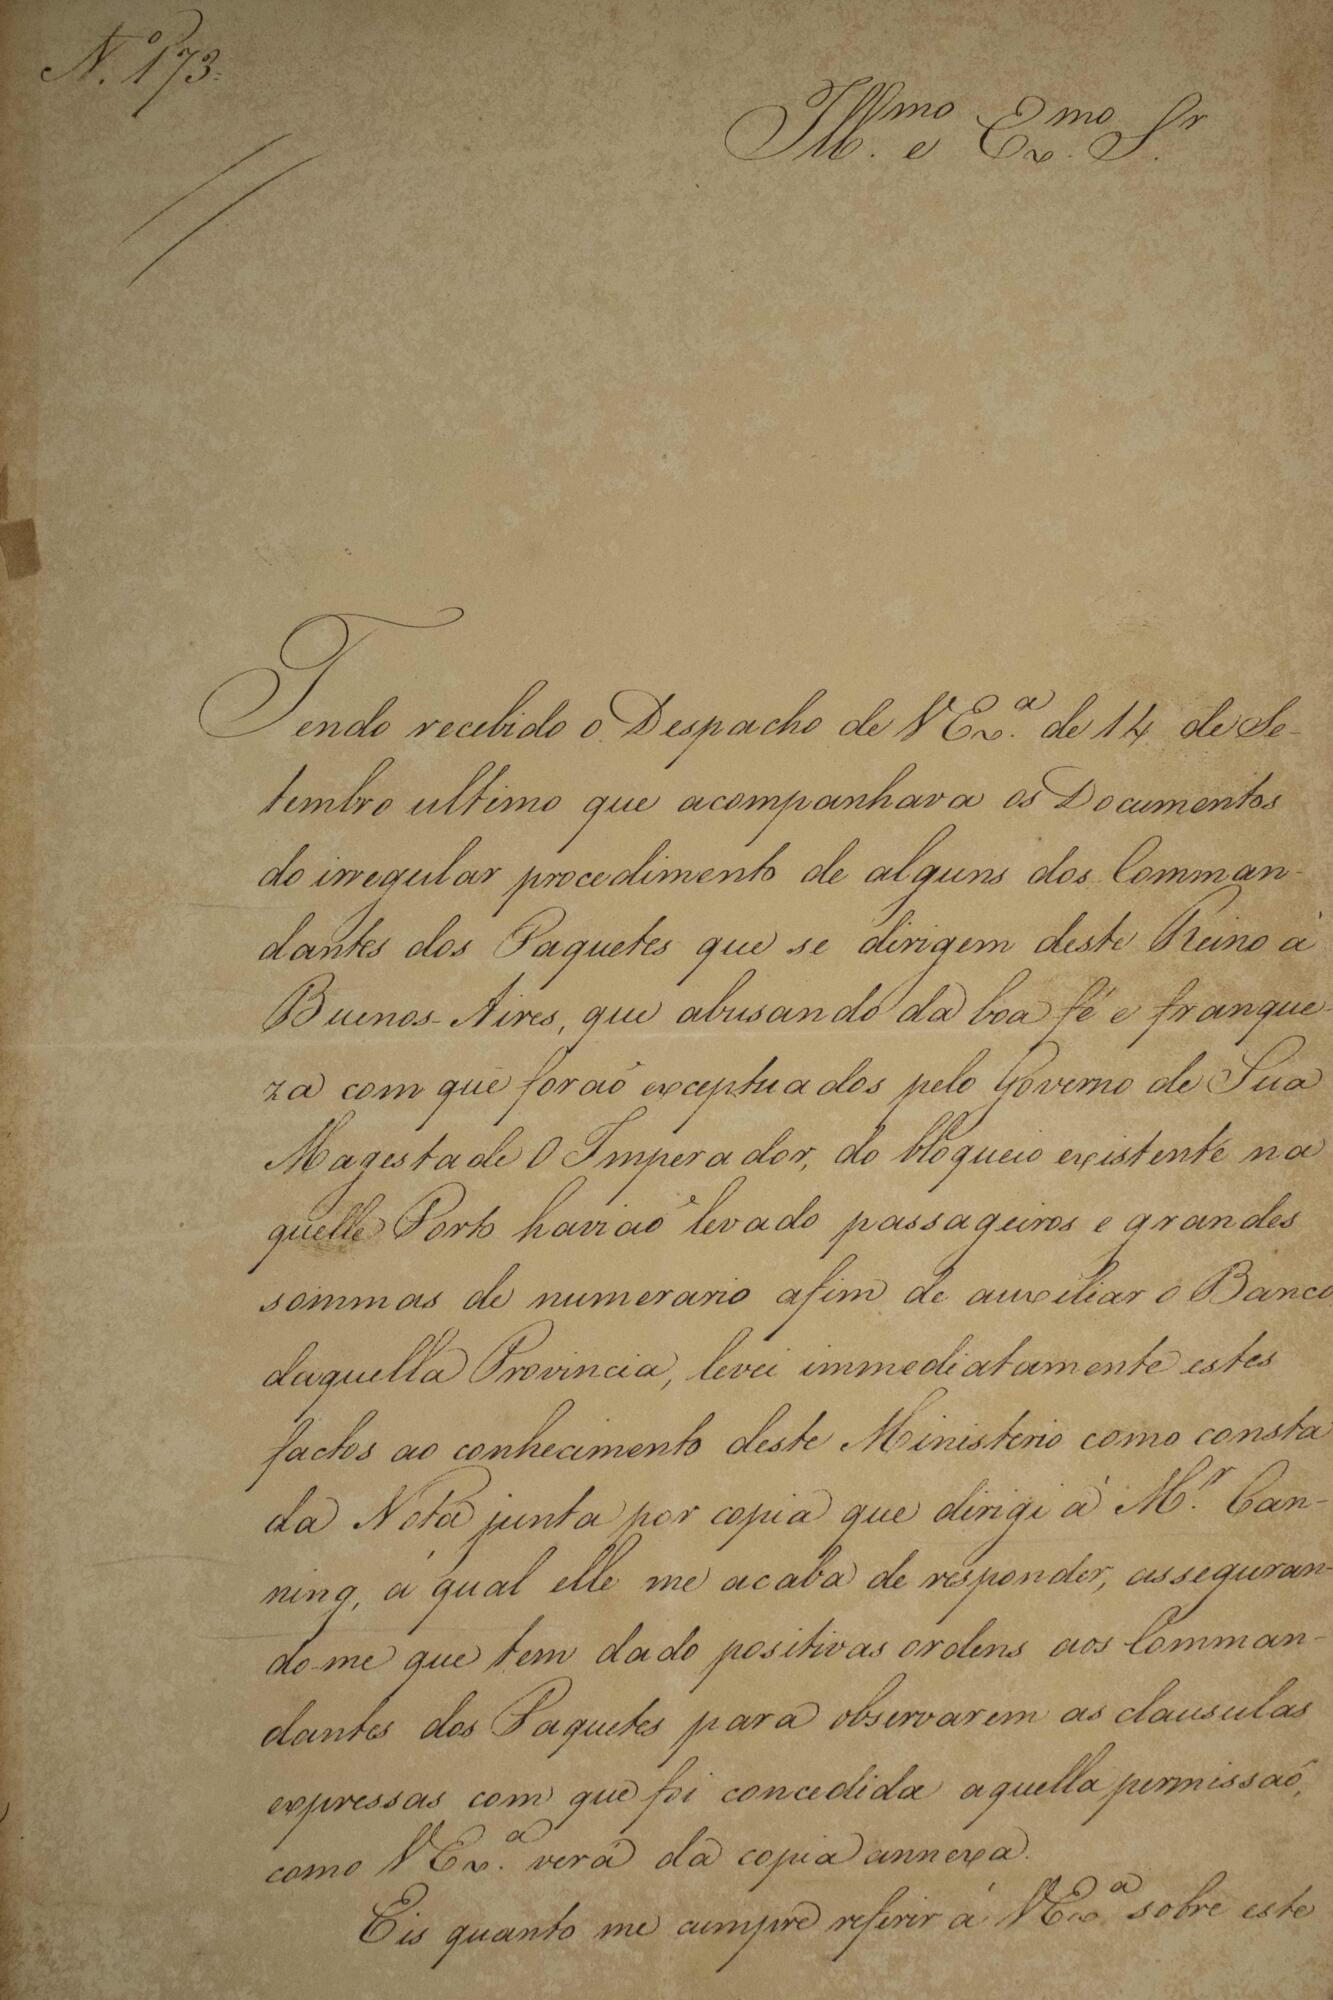 N.º 173.
Ill.mo e Ex.mo S.r
Tendo recebido o Despacho de VEx.a de 14 de Se-
tembro ultimo que acompanhava os Documentos
do irregular procedimento de alguns dos Comman-
dantes dos Paquetes que se dirigem deste Reino à
Buenos-Aires, que abusando da boa fé e franque-
za com que foraõ exceptuados pelo Governo de Sua
Magestade O Imperador, do bloqueio existente na
quelle Porto haviaõ levado passageiros e grandes
sommas de numerario afim de auxiliar o Banco
daquella Provincia, levei immediatamente estes
factos ao conhecimento deste Ministerio como consta
da Nota junta por copia que dirigi à M.r Can-
ning, á qual elle me acaba de responder, asseguran-
do-me que tem dado positivas ordens aos Comman-
dantes dos Paquetes para observarem as clausulas
expressas com que foi concedida aquella permissaõ,
como VEx.a verá da copia annexa.
Eis quanto me cumpre referir á VEx.a sobre este